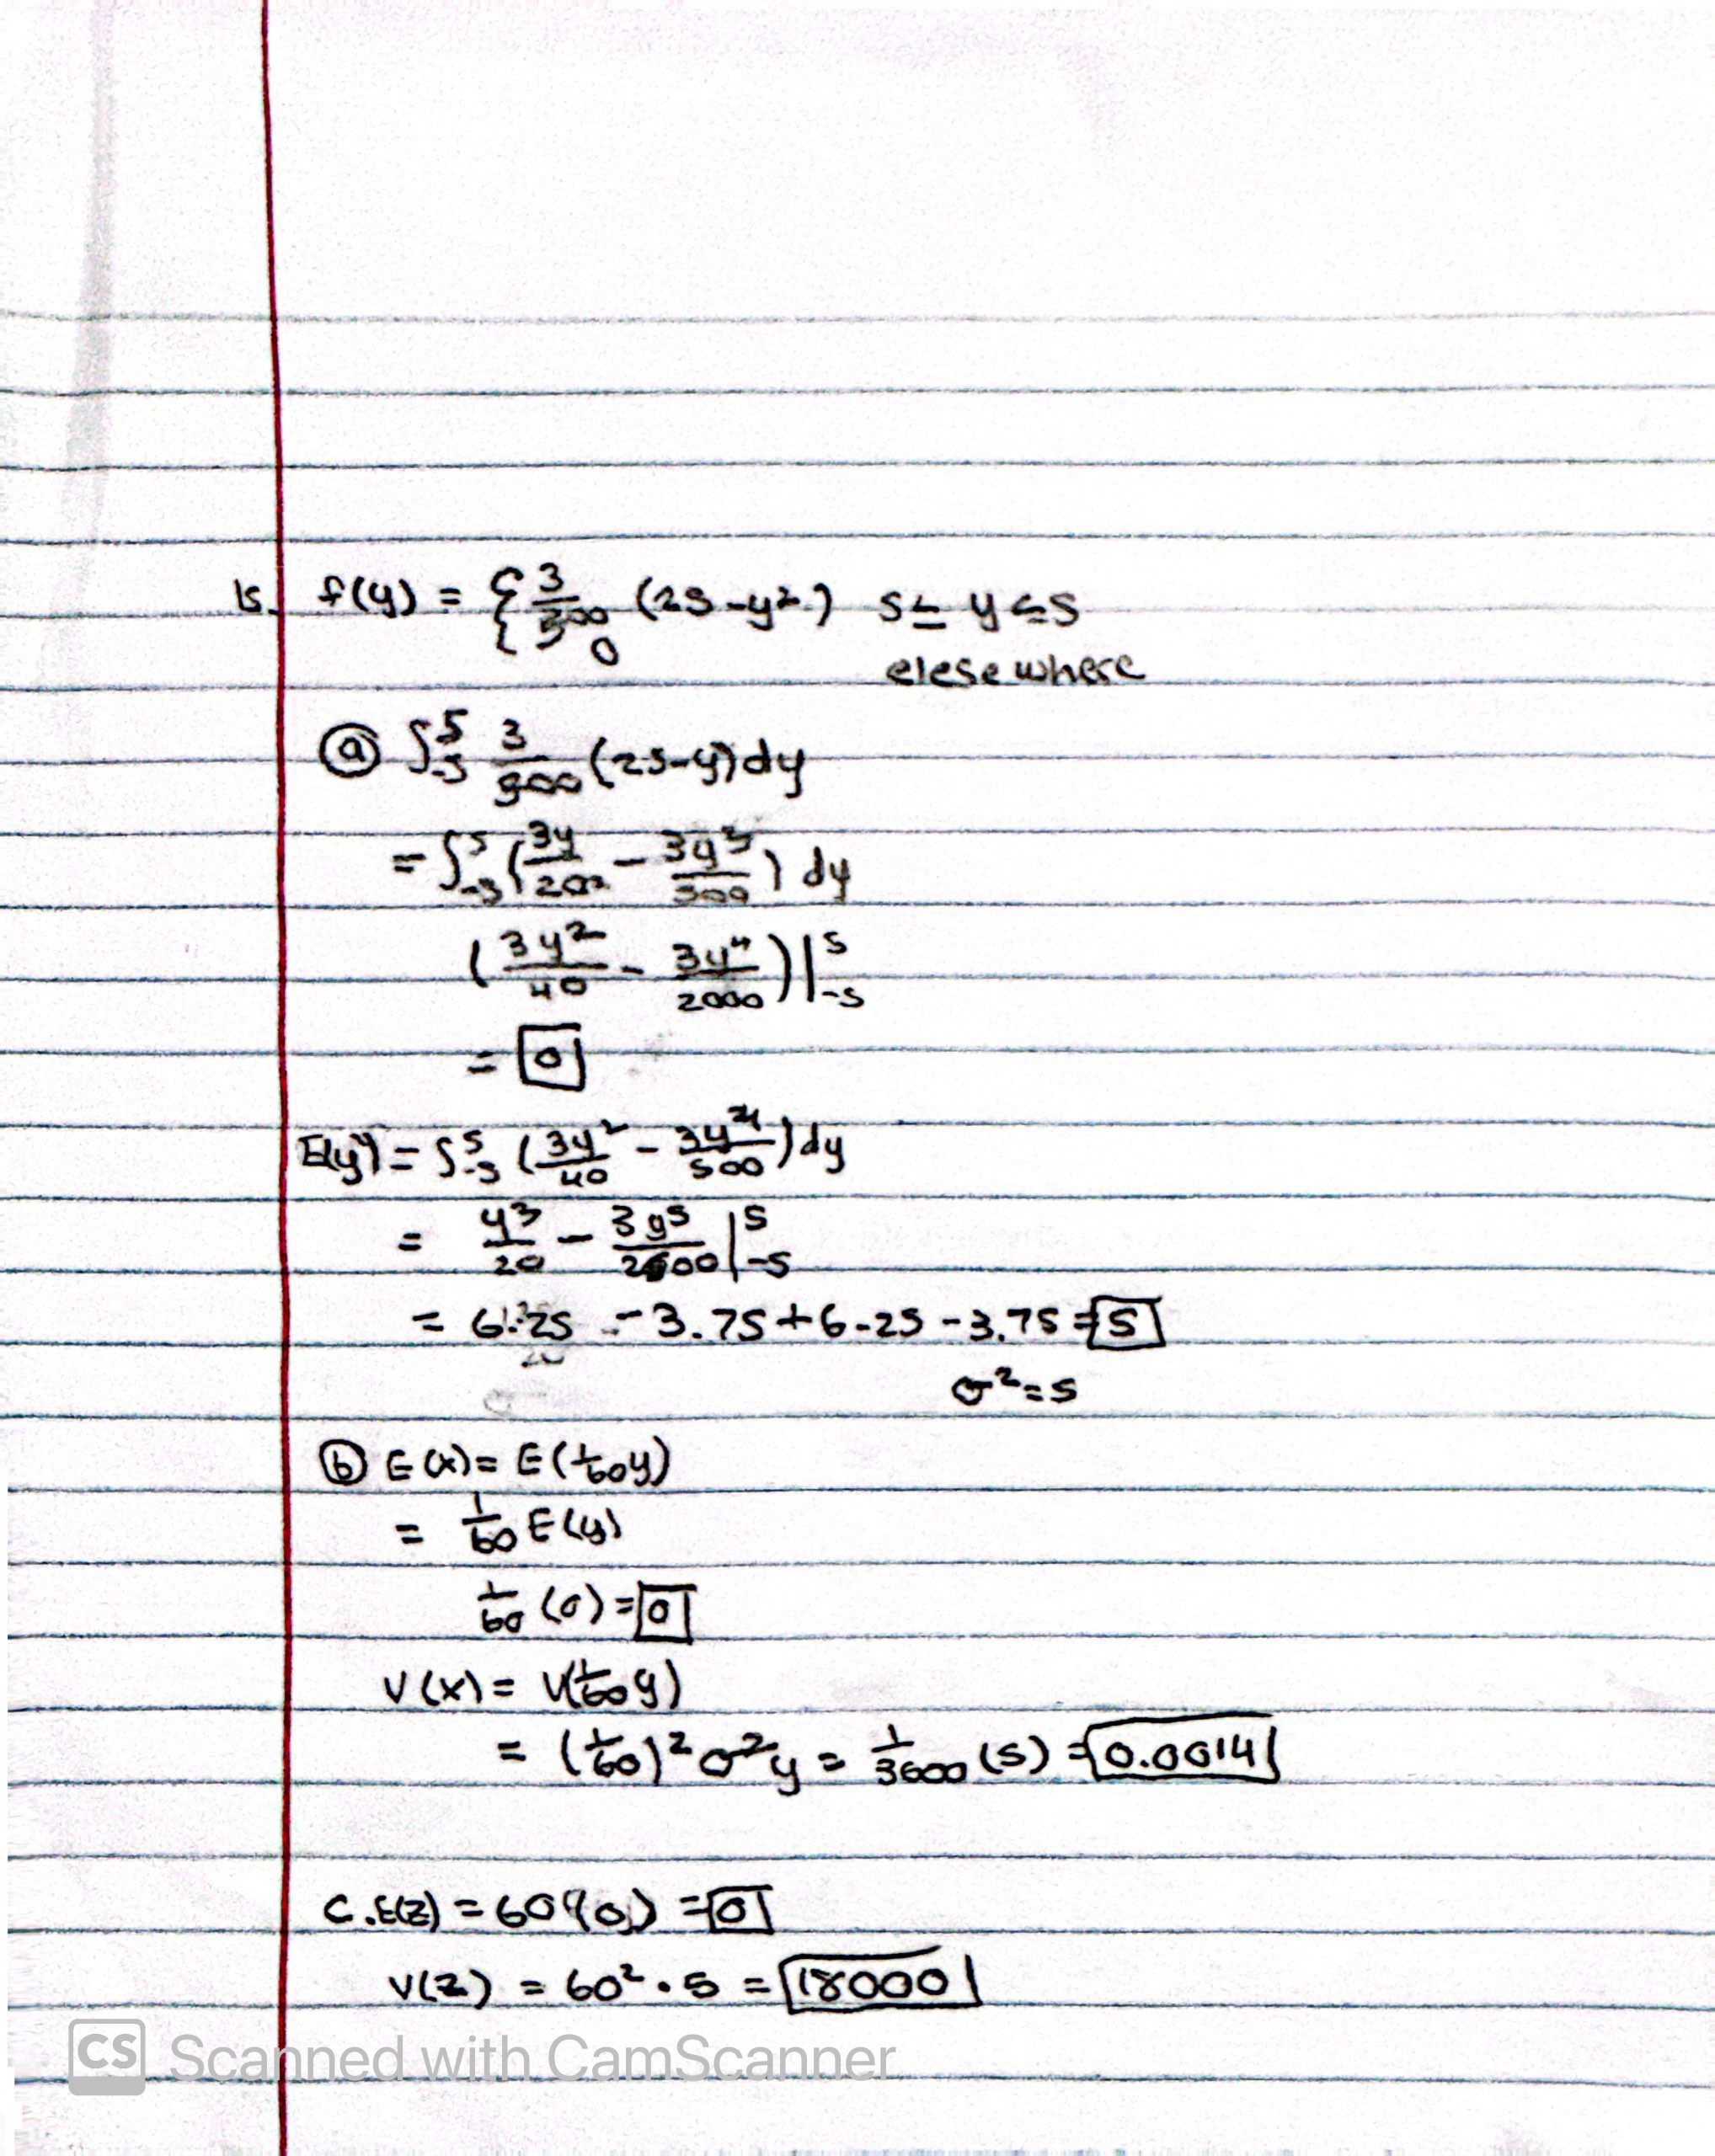 15. f(y) = { 3/500 (25-y²) 5≤ y≤5
0 elesewhere
ⓐ ∫₋₅⁵ 3/500 (25-y²) dy
= ∫₋₅⁵ (3y/20 - 3y³/500) dy
(3y²/40 - 3y⁴/2000)|₋₅⁵
= 0
E(y²) = ∫₋₅⁵ (3y²/40 - 3y⁴/500) dy
= y³/20 - 3y⁵/2500 |₋₅⁵
= 6.25 - 3.75+6.25 -3.75 = 5
σ²=5
ⓑ E(x)= E(1/60y)
= 1/60 E(y)
1/60 (0) = 0
V(x) = V(1/60y)
= (1/60)² σ²y = 1/3600 (5) = 0.0014
C. E(Z) = 60(0) = 0
V(Z) = 60² • 5 = 18000
CS Scanned with CamScanner